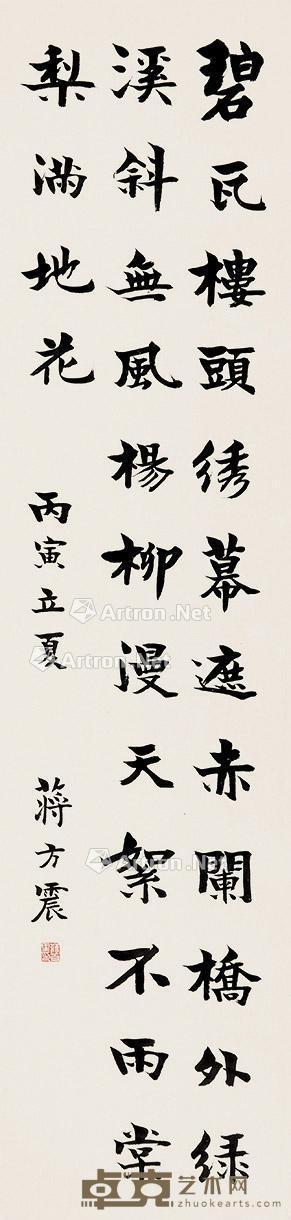 碧瓦樓頭綉幕遮赤闌橋外緑
溪斜無風楊柳漫天絮不雨棠
梨滿地花
丙寅立夏
蔣方震
Artron.Net
Artron.Net
Artron.Net
Artron.Net
卓克艺术网
www.zhuokearts.com